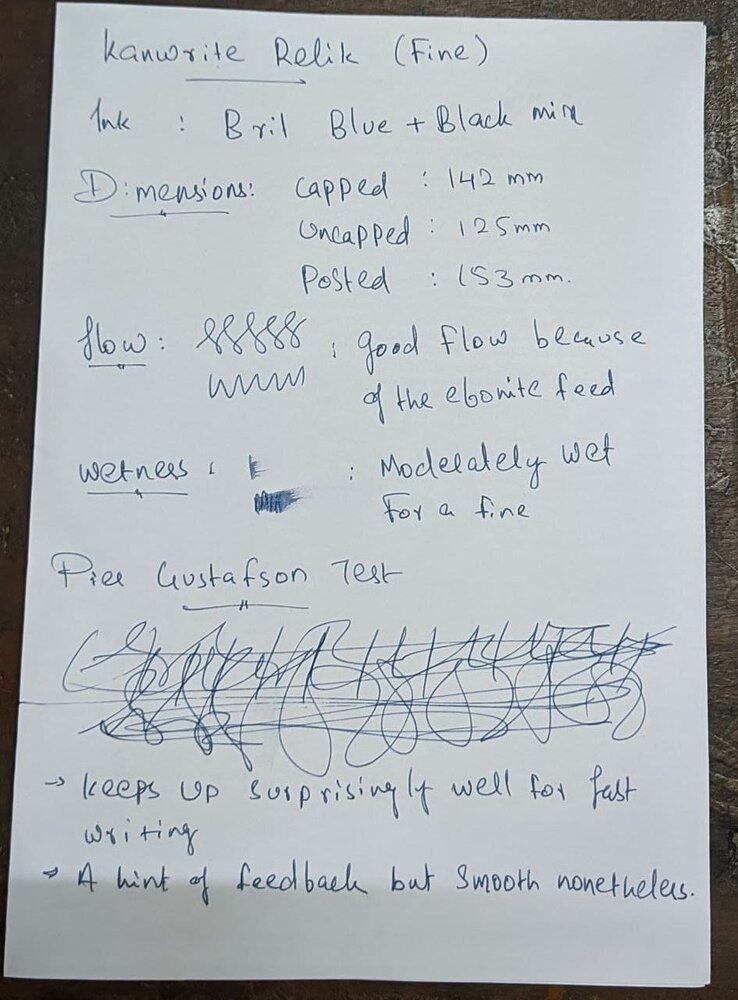 Kanwrite Relik (Fine)
Ink : Bril Blue + Black mix
Dimensions: Capped : 142 mm
Uncapped : 125mm
Posted : 153 mm.
flow: : good flow because
of the ebonite feed
wetness : : Moderately wet
For a fine
Pier Gustafson Test
→ keeps up surprisingly well for fast
writing
→ A hint of feedback but smooth nonetheless.